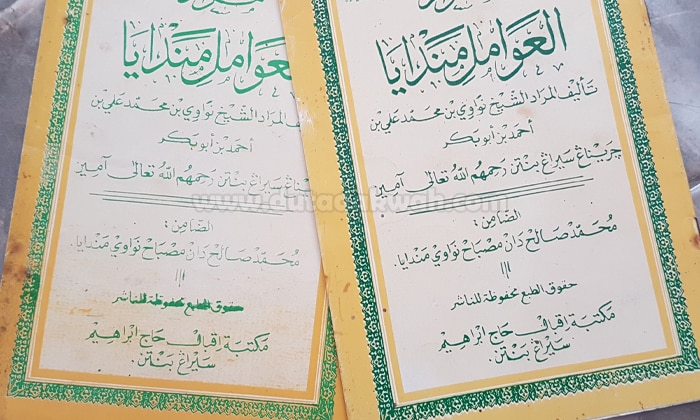 العوامل مندايا
تأليف المراد الشيخ نواوي بن محمد علي بن
أحمد بن أبو بكر
جريتاڠ سيراڠ بنتن رحمهم الله تعالى آمين
الضامن :
محمد صالح دان مصباح نواوي مندايا.
حقوق الطبع محفوظة للناشر
مكتبة اقبال حاج ابراهيم
سيراڠ بنتن.
العوامل مندايا
تأليف المراد الشيخ نواوي بن محمد علي بن
أحمد بن أبو بكر
سيراڠ بنتن رحمهم الله تعالى آمين
الضامن :
محمد صالح دان مصباح نواوي مندايا.
حقوق الطبع محفوظة للناشر
مكتبة اقبال حاج ابراهيم
سيراڠ بنتن.
www.dutadakwah.com